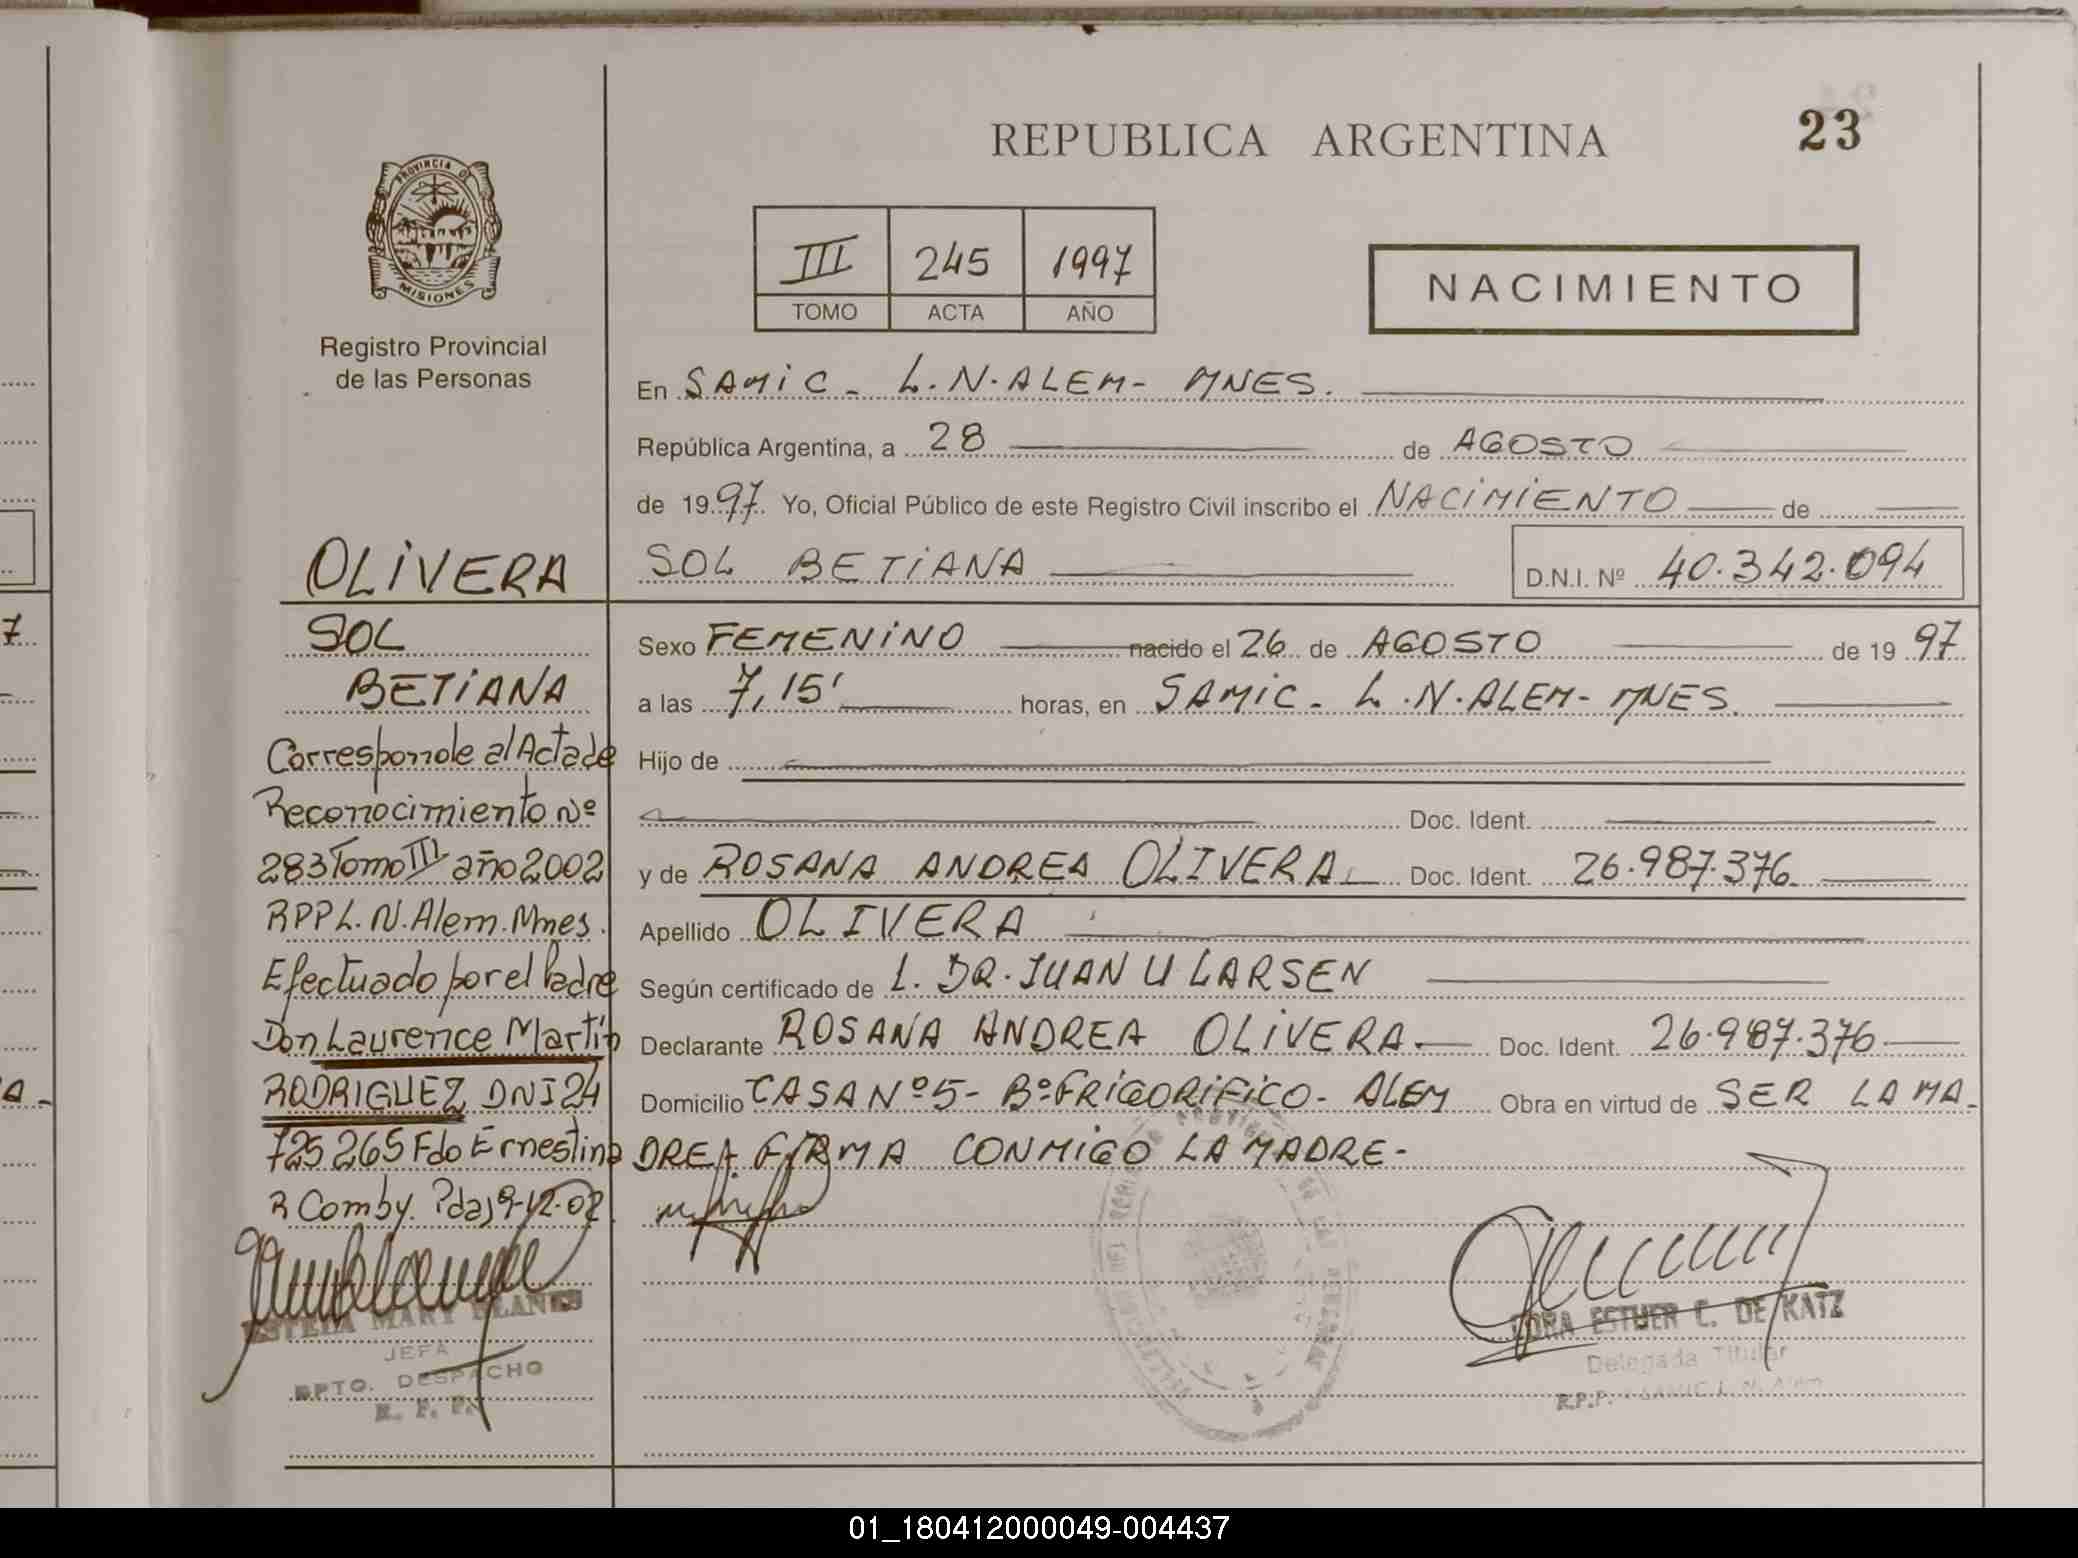 REPUBLICA ARGENTINA
23
PROVINCIA DE
MISIONES
Registro Provincial
de las Personas
III 245 1997
TOMO ACTA AÑO
NACIMIENTO
En SAMIC - L.N.ALEM - MNES.
República Argentina, a 28 de AGOSTO
de 1997. Yo, Oficial Público de este Registro Civil inscribo el NACIMIENTO de
SOL BETIANA D.N.I. Nº 40.342.094
Sexo FEMENINO nacido el 26 de AGOSTO de 1997
a las 7,15' horas, en SAMIC - L.N.ALEM - MNES.
Hijo de
Doc. Ident.
y de ROSANA ANDREA OLIVERA Doc. Ident. 26.987.376
Apellido OLIVERA
Según certificado de L. DR. JUAN U LARSEN
Declarante ROSANA ANDREA OLIVERA.- Doc. Ident. 26.987.376
Domicilio CASA Nº 5 - Bº FRIGORIFICO - ALEM Obra en virtud de SER LA MA-
DRE - FIRMA CONMIGO LA MADRE -
OLIVERA
SOL
BETIANA
Corresponde al Acta de
Reconocimiento Nº
283 Tomo III año 2002
RPP L.N.Alem.Mnes.
Efectuado por el Padre
Don Laurence Martín
RODRIGUEZ DNI 24
725 265 Fdo Ernestina
R Comby. Pdas 9-12-02.
ESTELA MARY BLANES
JEFA
DPTO. DESPACHO
R. P. P.
DORA ESTHER C. DE KATZ
Delegada Titular
R.P.P. - SAMIC L. N. Alem
7
A -
01_180412000049-004437